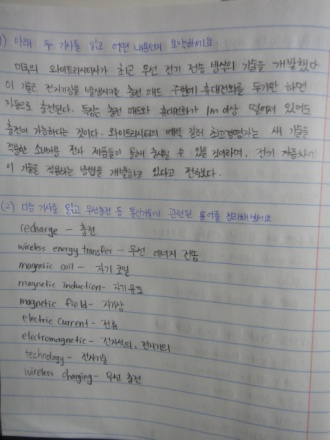 1) 아래 두 기사를 읽고 어떤 내용인지 요약하시오
미국의 와이트리시티사가 최근 무선 전기 전송 방식의 기술을 개발했다
이 기술은 전자기장을 발생시키는 충전 패드 주변에 휴대전화를 두기만 하면
자동으로 충전된다. 특징은 충전 패드와 휴대전화가 1m이상 떨어져 있어도
충전이 가능하다는 것이다. 와이트리시티의 에릭 길러 최고경영자는 새 기술을
적용한 소비자용 전자 제품들이 출시 될 수 있을 것이라며, 전기 자동차에
이 기술을 적용하는 방법을 개발하고 있다고 전했다.
(2) 다음 기사를 읽고 무선충전 등 관련된 용어를 정리해보시오
recharge - 충전
wireless energy transfer - 무선 에너지 전송
magnetic coil - 자기 코일
magnetic induction - 자기유도
magnetic field - 자기장
electric current - 전류
electromagnetic - 전자석의, 전자기의
technology - 전자기술
wireless charging - 무선 충전